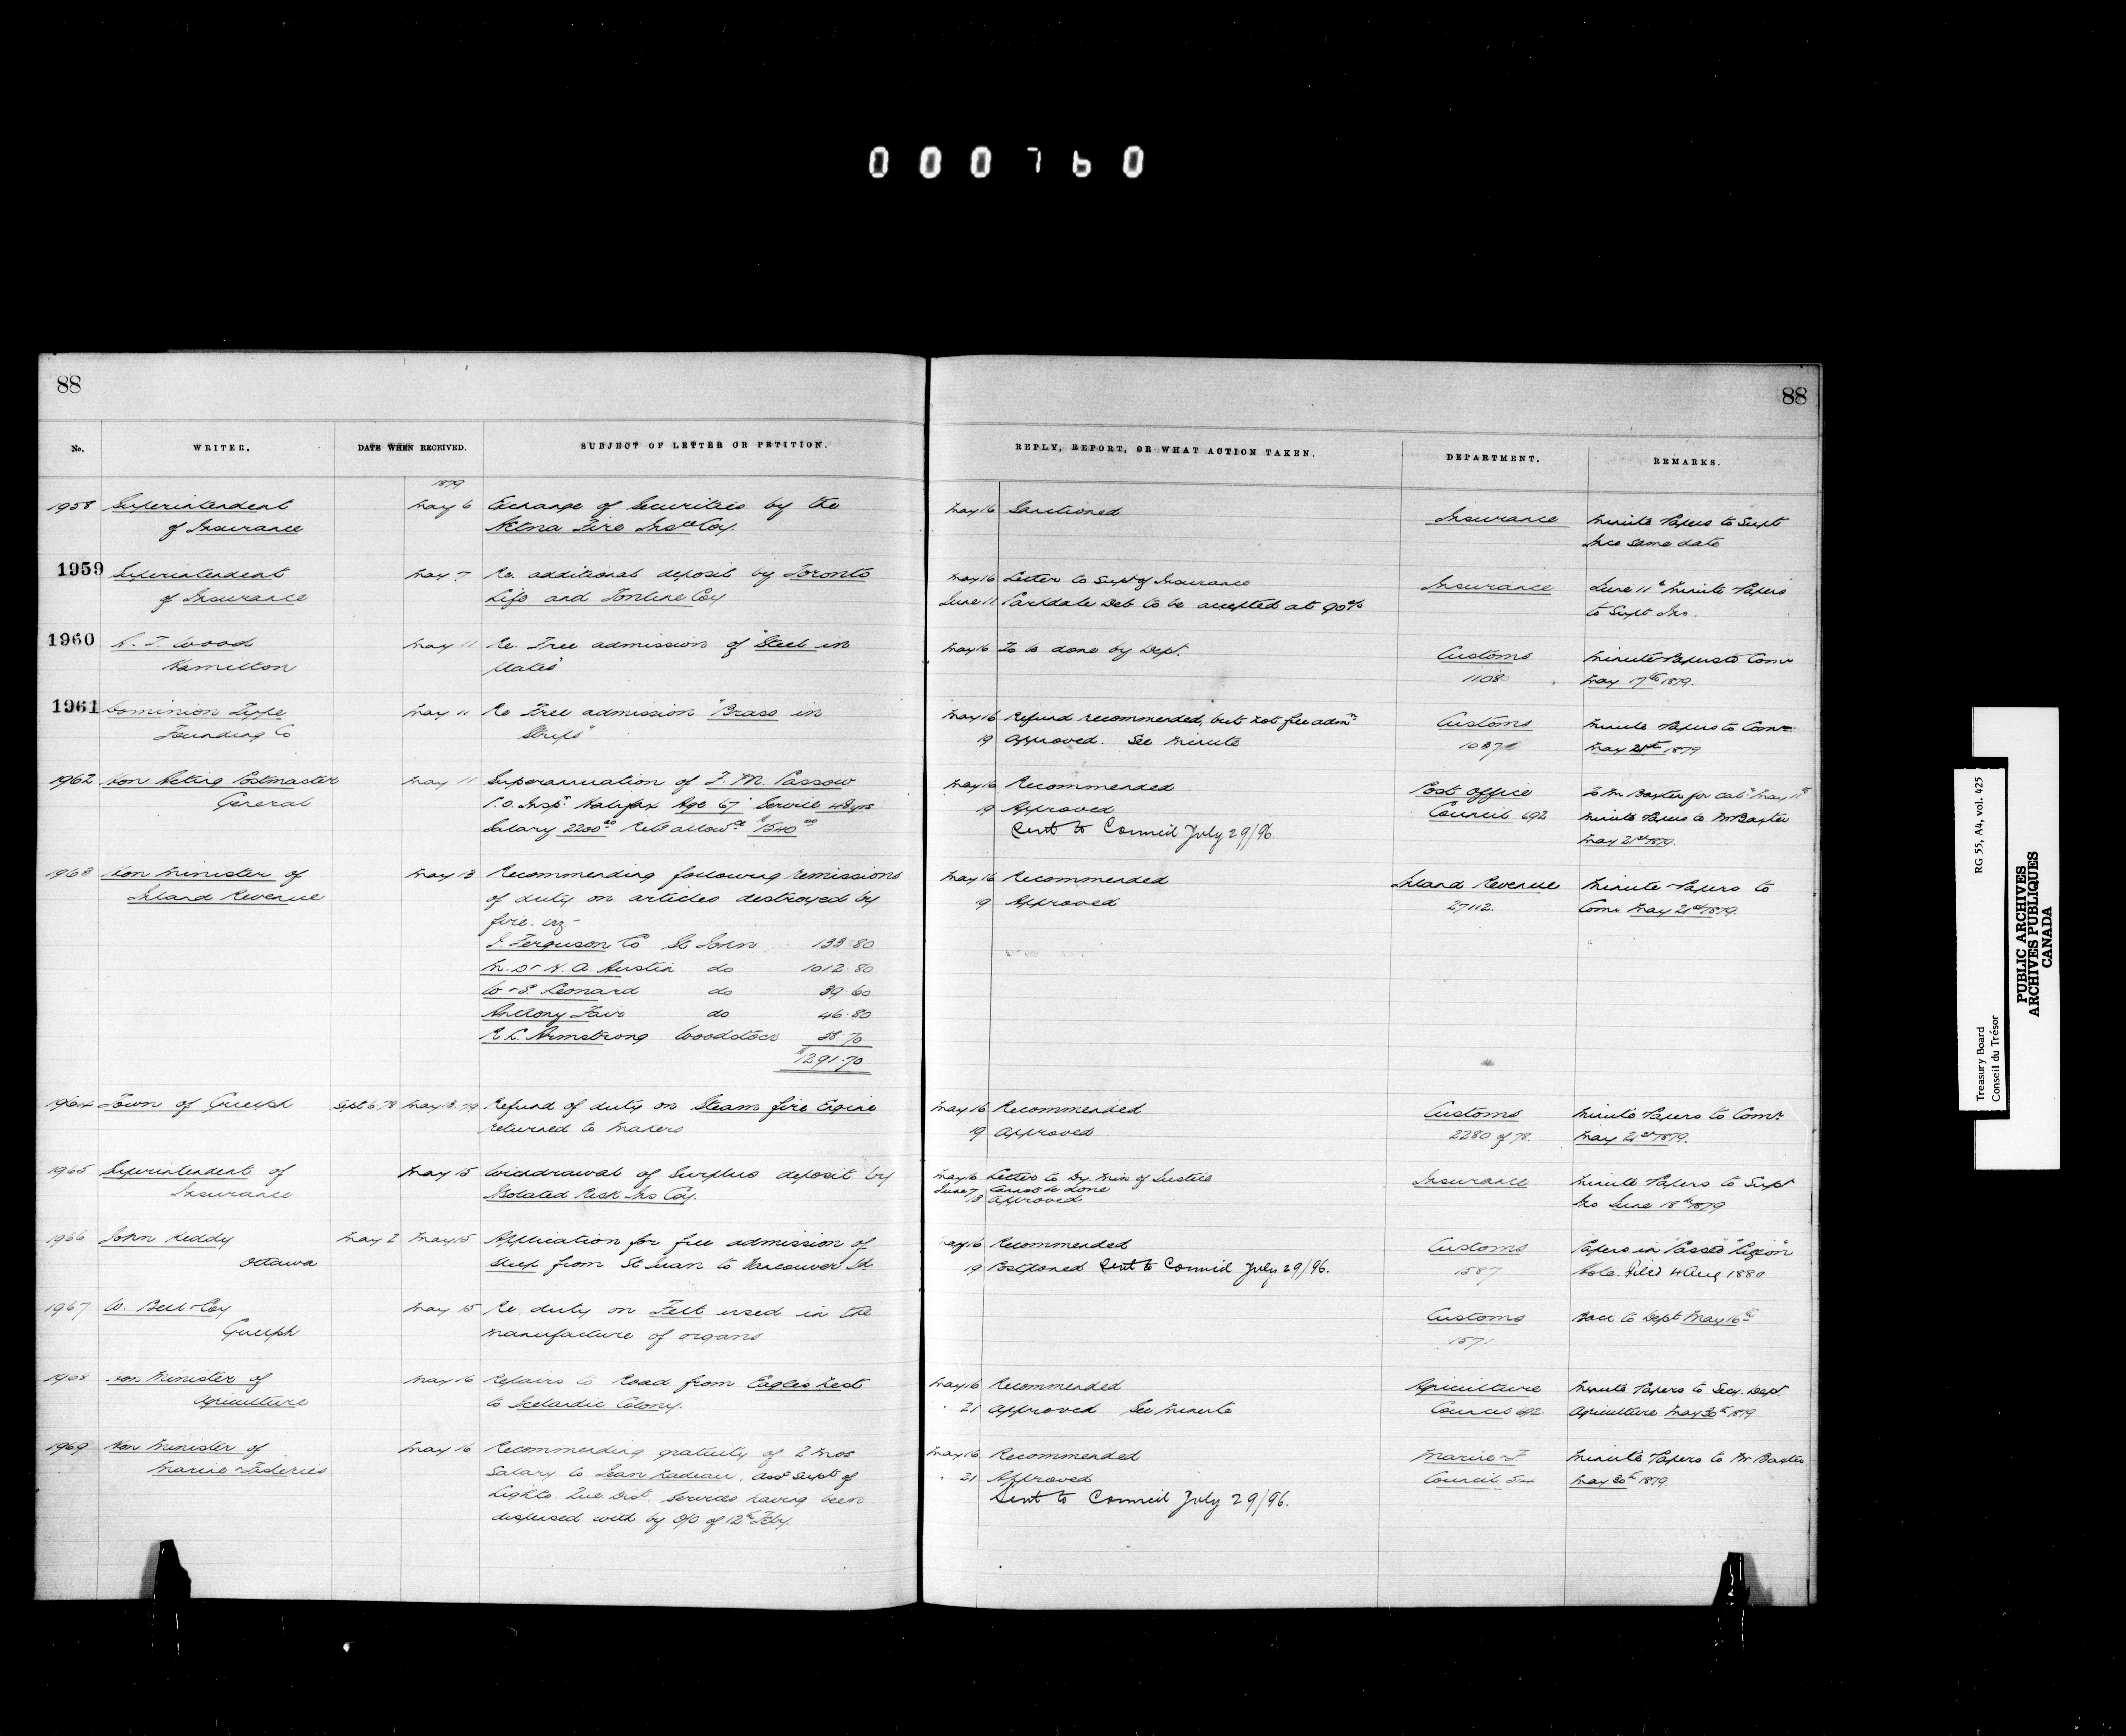 000760
88
No.
WRITER.
DATE WHEN RECEIVED.
SUBJECT OF LETTER OR PETITION.
1879
1958 Superintendent May 6 Exchange of Securities by the
of Insurance Aetna Fire Insce Coy.
1959 Superintendent May 7 Re. additional deposit by Toronto
of Insurance Life and Tontine Coy
1960 A. T. Wood May 11 Re. Free admission of "Steel in
Hamilton Plates"
1961 Dominion Type May 11 Re Free admission "Brass in
Founding Co Strips"
1962 Hon Acting Postmaster May 11 Superannuation of F. M. Passow
General P.O. Inspr Halifax Age 67 Service 48 yrs
Salary 2200 00 Retg allowce $1540 00
1963 Hon Minister of May 13 Recommending following remissions
Inland Revenue of duty on articles destroyed by
fire. viz-
J. Ferguson Co St John 133.80
M. D & H. A. Austin do 1012.80
W & S Leonard do 39.60
Anthony do 46.80
Armstrong Woodstock 58 70
$1291.70
1964 Town of Guelph Sept 6, 78 May 13. 79 Refund of duty on Steam fire Engine
returned to makers
1965 Superintendent of May 15 Withdrawal of Surplus deposit by
Insurance Isolated Risk Ins Coy.
1966 John Reddy May 2 May 15 Application for free admission of
Ottawa Sheep from St Juan to Vancouver Id
1967 W. Bell & Coy May 15 Re. duty on Felt used in the
Guelph manufacture of organs
1968 Hon Minister of May 16 Repairs to Road from Eagles Nest
Agriculture to Icelandic Colony.
1969 Hon Minister of May 16 Recommending gratuity of 2 mos
Marine & Fisheries Salary to Jean Nadeau. Asst Supt of
Lights. Que. Dist. Services having been
dispensed with by O/C of 12th Feby.
88
REPLY, REPORT, OR WHAT ACTION TAKEN.
DEPARTMENT.
REMARKS.
May 16 Sanctioned Insurance Minute & Papers to Supt
Ince same date
May 16 Letter to Supt of Insurance Insurance June 11th Minute & Papers
June 11 Parkdale Deb to be accepted at 90% to Supt Ins.
May 16 To be done by Dept. Customs Minute & Papers to Comr
1108 May 17th 1879.
May 16 Refund recommended, but not free admn Customs Minute & Papers to Comr
19 Approved. See Minute 1087 May 21st 1879
May 16 Recommended Post Office To Mr Baxter for
19 Approved Council 692 Minute & Papers to Mr Baxter
Sent to Council July 29/96 May 21st 1879.
May 16 Recommended Inland Revenue Minute & Papers to
19 Approved 27112. Comr May 21st 1879.
May 16 Recommended Customs Minute & Papers to Comr
19 Approved 2280 of 78. May 21st 1879.
May 16 Letter to Dy. Min of Justice Insurance Minute & Papers to Supt
June 7 Cannot be done Ins June 18th 1879
18 Approved
May 16 Recommended Customs Papers in
19 Postponed Sent to Council July 29/96. 1587 Hole. Filed 4 Aug 1880
Customs Back to Dept May 16th
1571
May 16 Recommended Agriculture Minute & Papers to Secy. Dept.
" 21 Approved See Minute Council 692 Agriculture May 30th 1879
May 16 Recommended Marine & F. Minute & Papers to Mr Baxter
" 21 Approved Council May 30th 1879.
Sent to Council July 29/96.
Treasury Board
Conseil du Trésor
RG 55, A4, vol. 425
PUBLIC ARCHIVES
ARCHIVES PUBLIQUES
CANADA